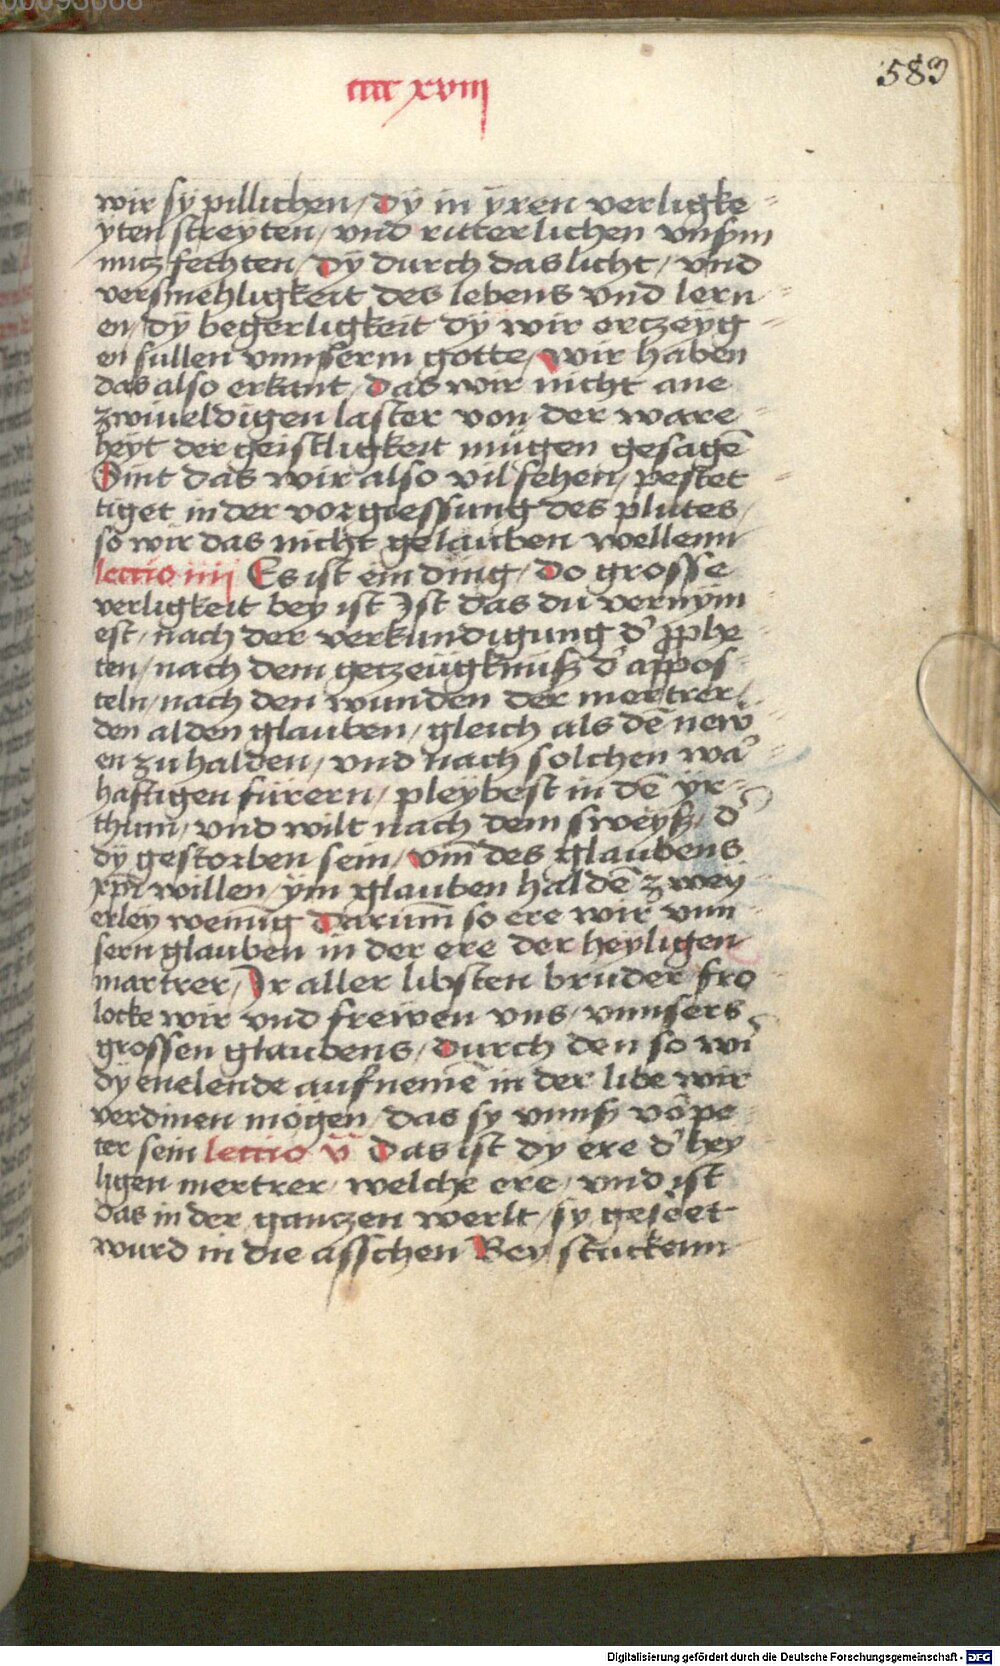 cccc xviij
583
wir sÿ pillichen / dÿ in ÿren verligke-
ÿten streÿten / vnd ritterlichen vnßm
nutz fechten / dÿ durch das licht / vnd
versmehligkeit des lebens vnd lern-
en / dÿ begerligkeit dÿ wir ertzeÿg-
en sullen vnnserm gotte / wir haben
das also erkant / das wir nicht ane
zwiueldigen laster von der ware-
heÿt der geistligkeit mügen gesagē
Sint das wir also vil sehen / pestet-
tiget in der vorgiessung des plutes /
so wir das nicht gelauben wellenn
lectio iiij Es ist ein ding / do grosse
verligkeit bey ist Ist das du vernÿm-
est / nach der verkundigung d' prophe-
ten / nach dem getzeügknuß d' appos-
teln / nach den wunden der mertrer /
den alden glauben / gleich als dē new-
en zu halden / vnd nach solchen wa'-
hafftigen fürern / pleÿbest in dē ÿr-
thum / vnd wilt nach dem sweÿß / d'
dÿ gestorben sein / vm̄ des glaubens
xp̄i willen / ÿm glauben haldē zweÿ-
erleÿ wenung Darum̄ so ere wir vnn-
sern glauben in der ere der heÿligen
martrer / Ir aller libsten bruder fro-
locke wir vnd frewen vns / vnnsers
grossen glaubens / durch den so wi'
dÿ enelende aufnemē in der libe wir
verdinen mögen / das sy vnnß vorpe-
ter sein lectio v̈ Das ist dy ere d' hey-
ligen mertrer / welche ere / vnd ist
das in der gantzen werlt / sy geseet
wurd in die asschen Bey stuckenn
Digitalisierung gefördert durch die Deutsche Forschungsgemeinschaft - DFG